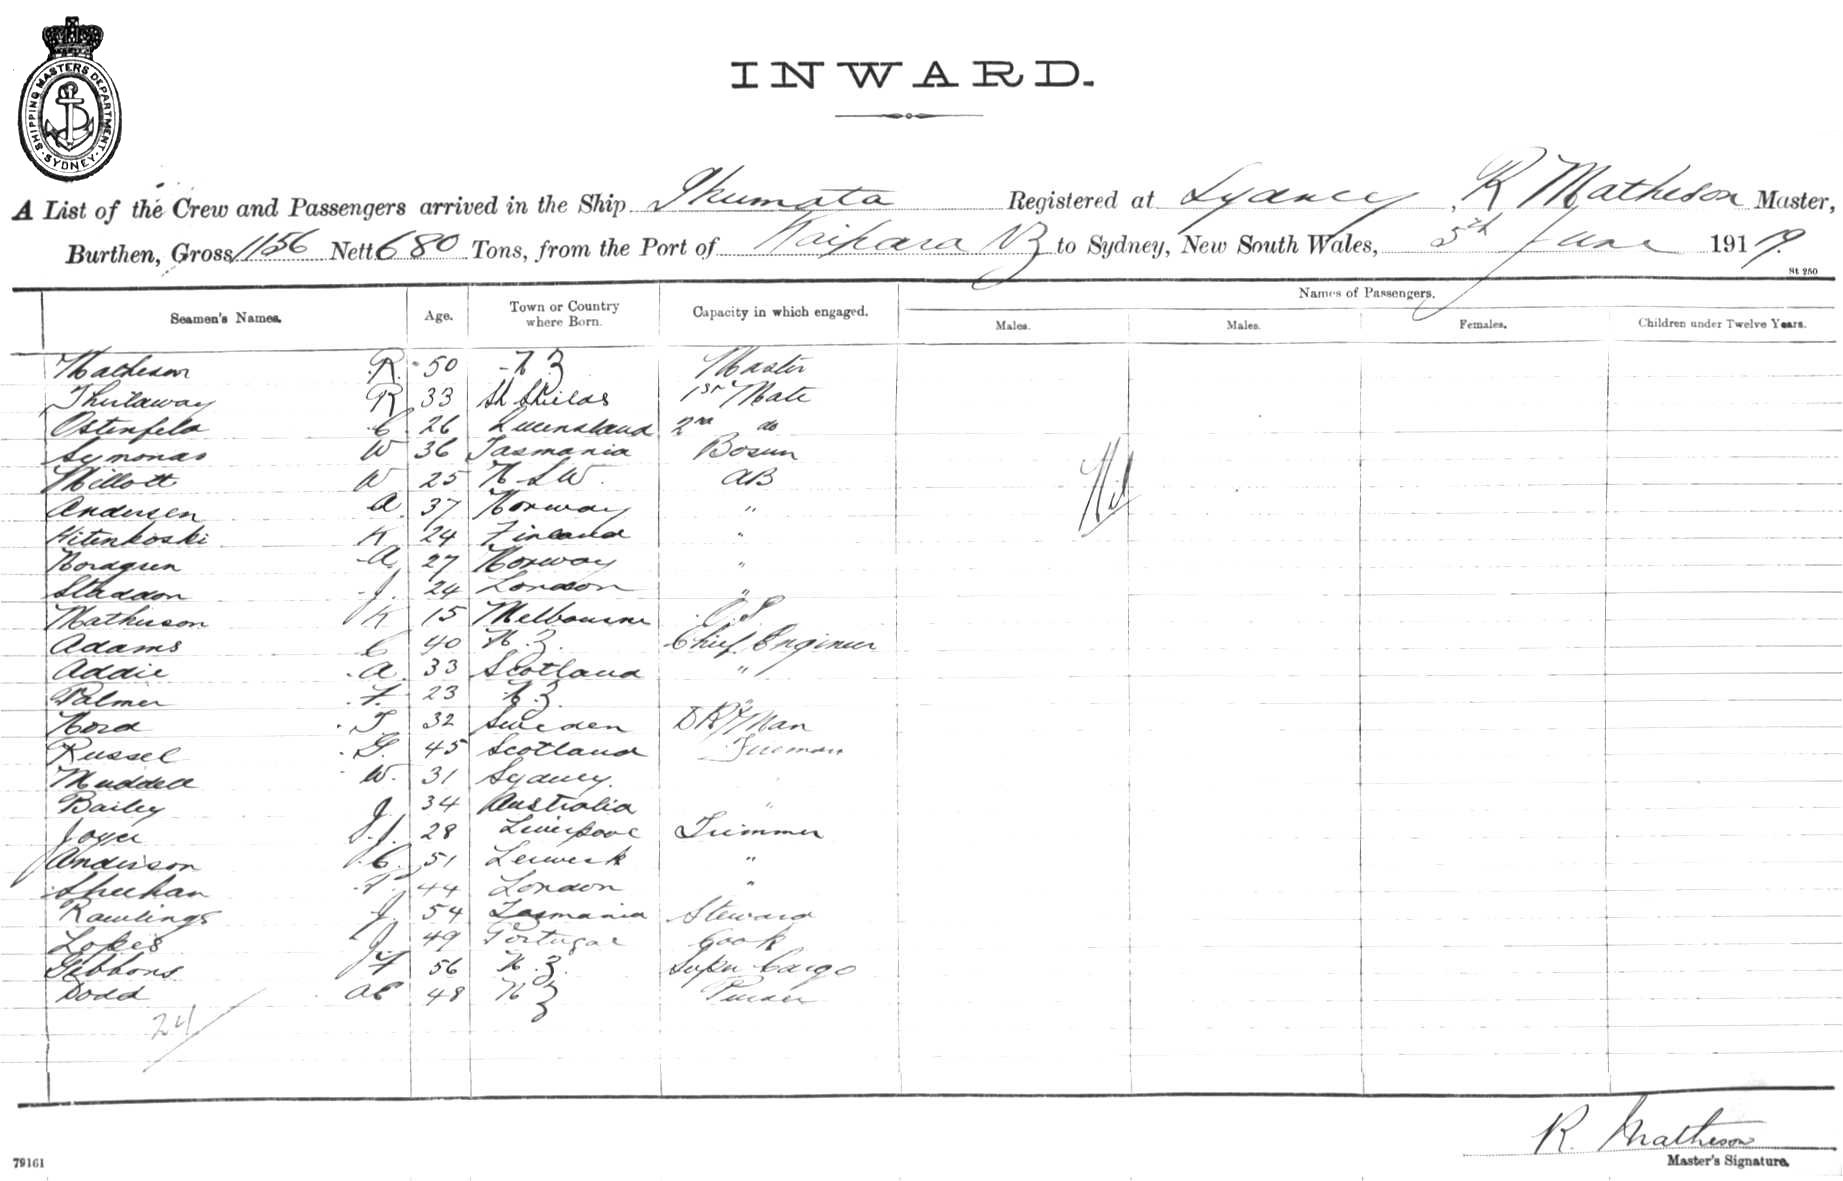 SHIPPING MASTERS DEPARTMENT · SYDNEY ·
INWARD.
A List of the Crew and Passengers arrived in the Ship Ikumata Registered at Sydney, R Matheson Master,
Burthen, Gross 1156 Nett 680 Tons, from the Port of Kaipara NZ to Sydney, New South Wales, 5th June 1919.
St 250
Seamen's Names. Age. Town or Country where Born. Capacity in which engaged. Names of Passengers.
Males. Males. Females. Children under Twelve Years.
Matheson R. 50 N Z Master
R 33 Sh Shields 1st Mate
Ostenfeld C. 26 Queensland 2nd do
Symonds W 36 Tasmania Bosun
Millott W 25 N S W. AB
Andersen A 37 Norway "
Hitenkoski K 24 Finland "
Nordgren A. 27 Norway "
Staddon J. 24 London "
Matheson K 15 Melbourne
Adams C 40 N. Z. Chief Engineer
Addie A. 33 Scotland "
Palmer F. 23 N. Z.
Nord T 32 Sweden
Russel G. 45 Scotland Fireman
Muddell W. 31 Sydney.
Bailey J. 34 Australia "
Joyce J. J. 28 Liverpool Trimmer
Anderson C. 51 Lerwick "
Sheehan T 44 London "
Rawlings J. 54 Tasmania Steward
Lopes J. 49 Portugal Cook
Gibbons F 56 N. Z. Super Cargo
Dodd AC 48 N Z Purser
Nil
24
R. Matheson
Master's Signature.
79161